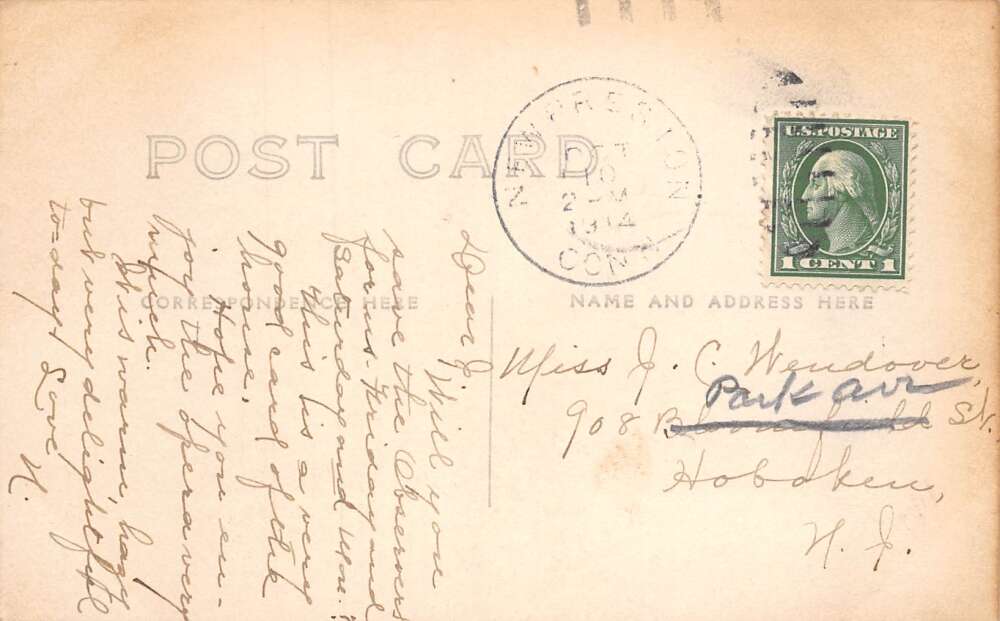 POST CARD
NEW PRESTON
OCT
10
2 - M
1914
CONN.
U.S. POSTAGE
1 CENT 1
CORRESPONDENCE HERE
NAME AND ADDRESS HERE
Miss J. C. Wendover,
Park Ave
908 Bloomfield St.
Hoboken,
N. J.
Dear J.
Will you
save the Observers
for us - Friday and
Saturday and Mon.?
This is a very
good card of the
house.
Hope you en-
joy the opera very
much.
It is warm, hazy
but very delightful
to-day. Love
N.